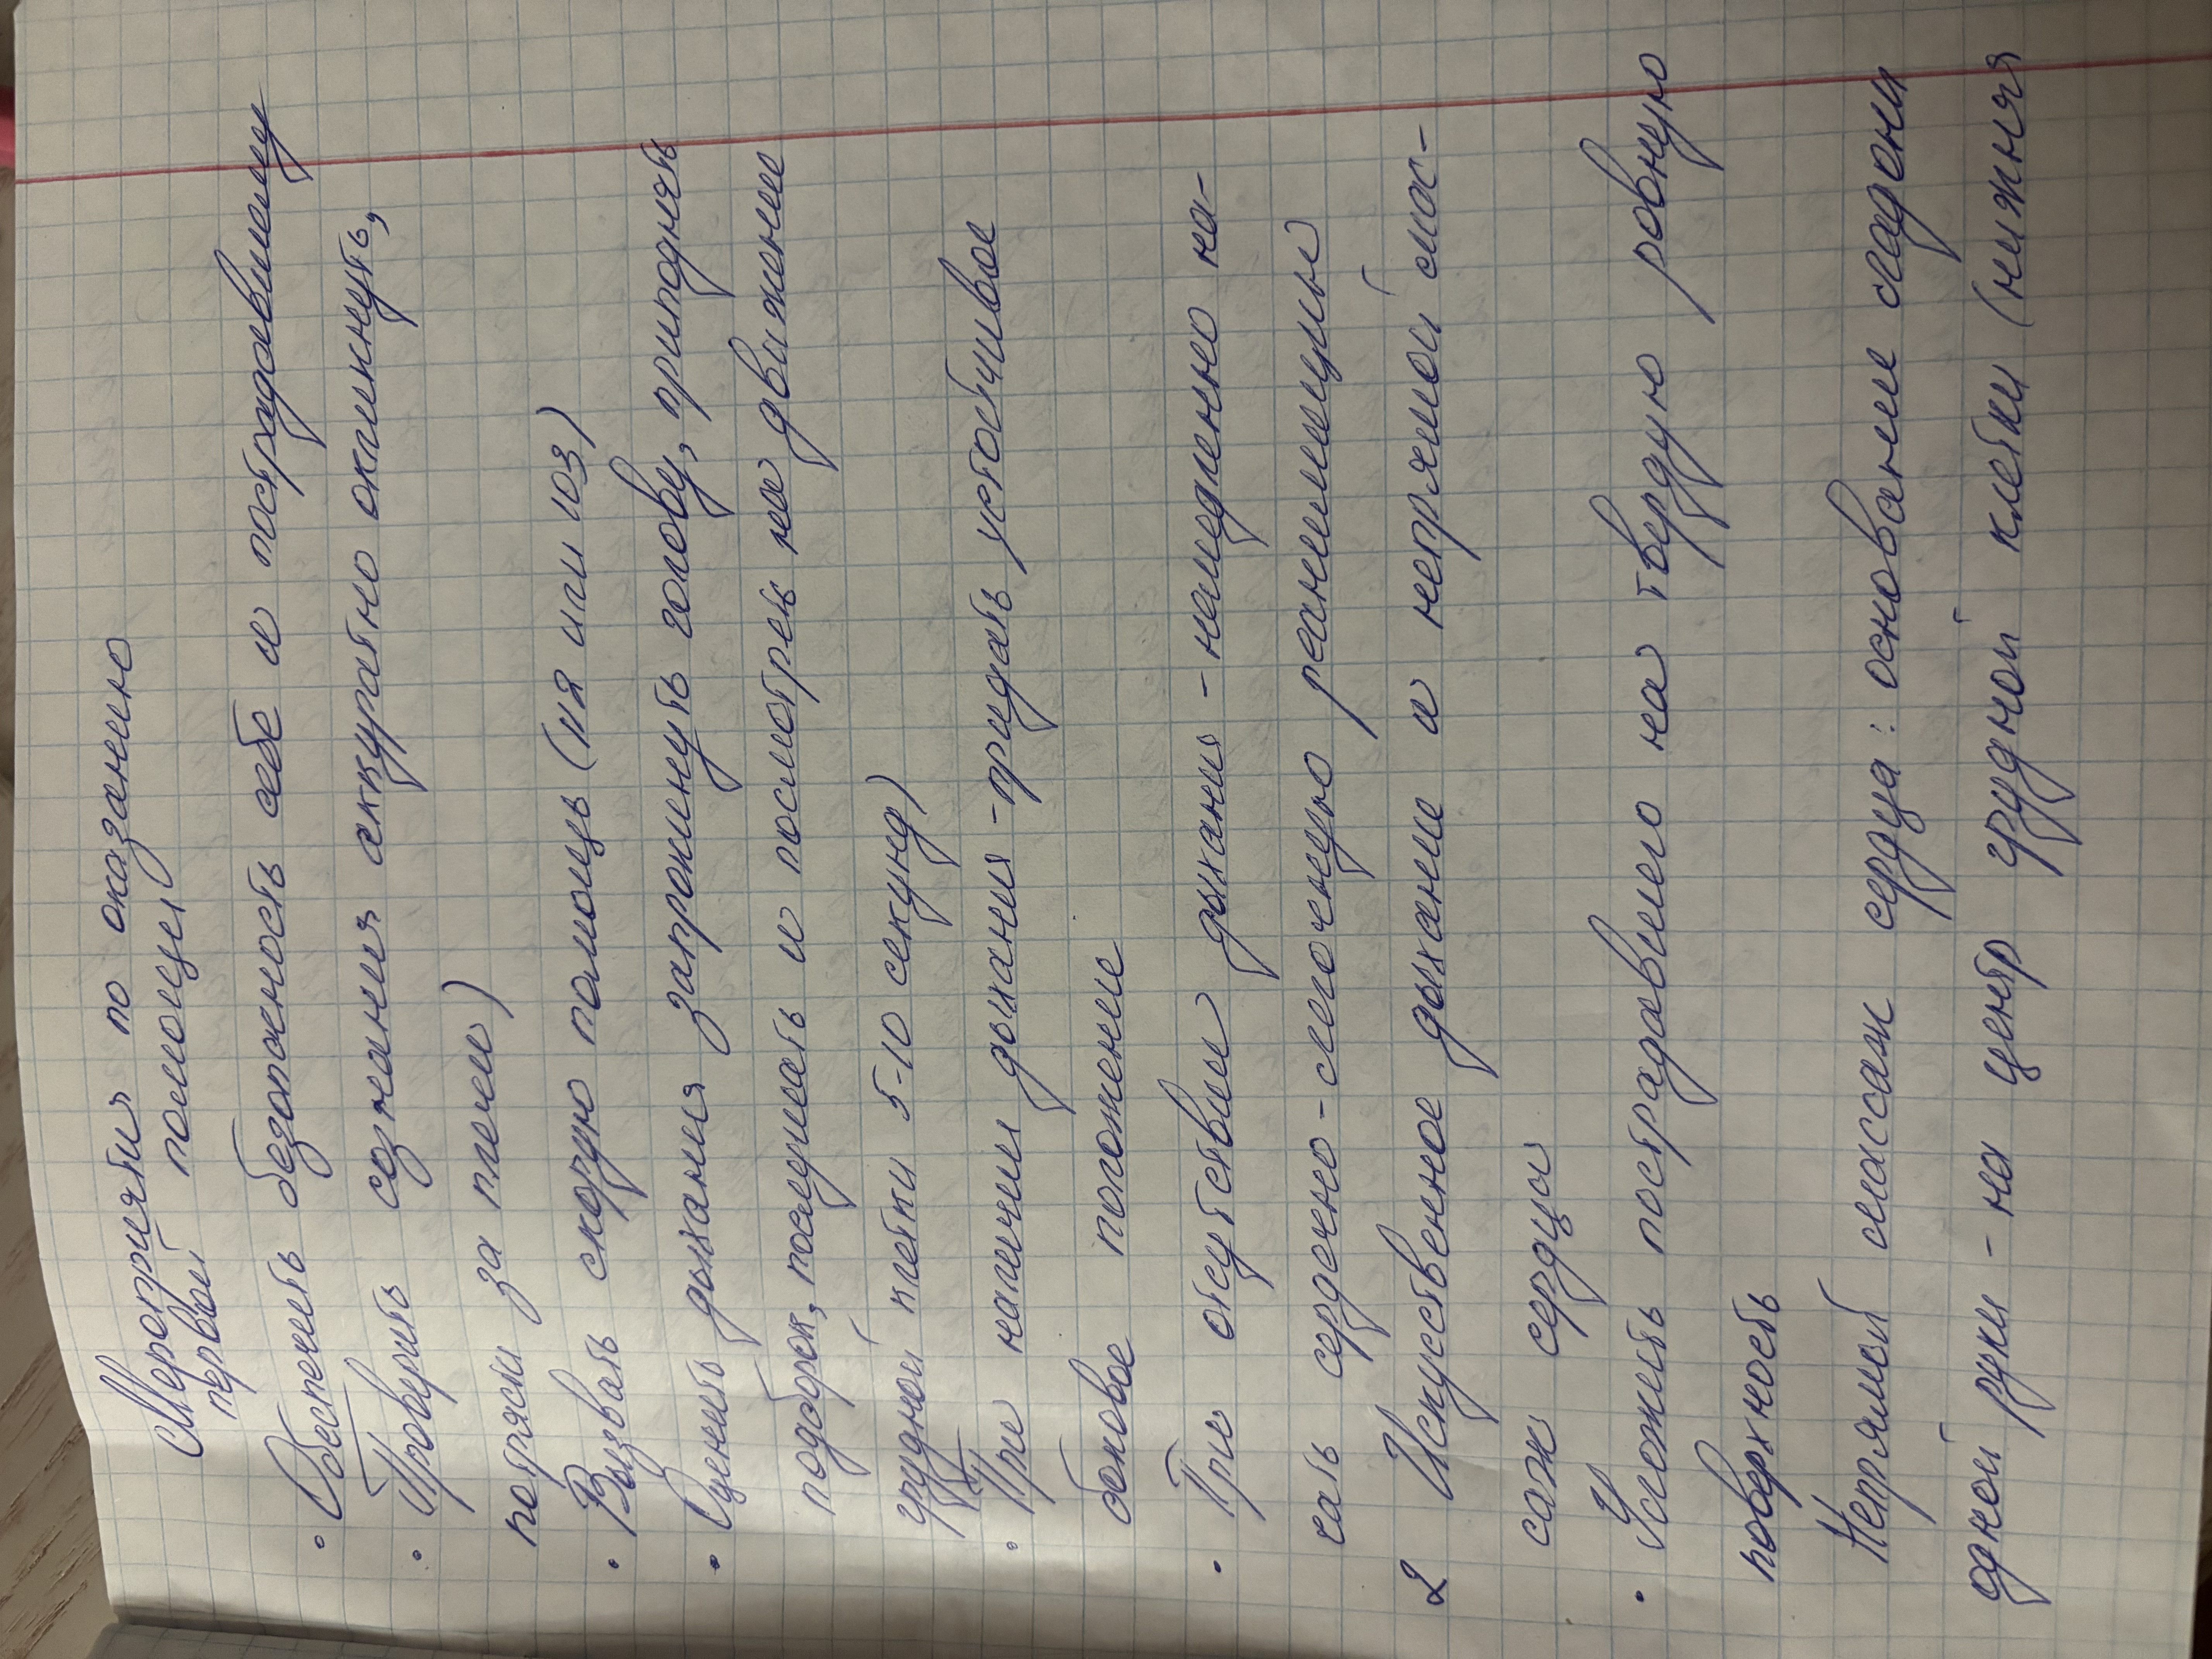 Мероприятия по оказанию
первой помощи
• Обеспечить безопасность себе и пострадавшему
• Проверить сознания аккуратно окликнуть,
потрясти за плечи)
• Вызвать скорую помощь (112 или 103)
• Оценить дыхания запрокинуть голову, приподнять
подбородок, послушать и посмотреть на движение
грудной клетки 5-10 секунд)
• При наличии дыхания - придать устойчивое
боковое положение
• При отсутствии дыхания - немедленно на-
чать сердечно-легочную реанимацию
2 Искусственное дыхание и непрямой мас-
саж сердца
• Уложить пострадавшего на твердую ровную
поверхность
Непрямой массаж сердца: основание ладони
одной руки - на центр грудной клетки (нижняя